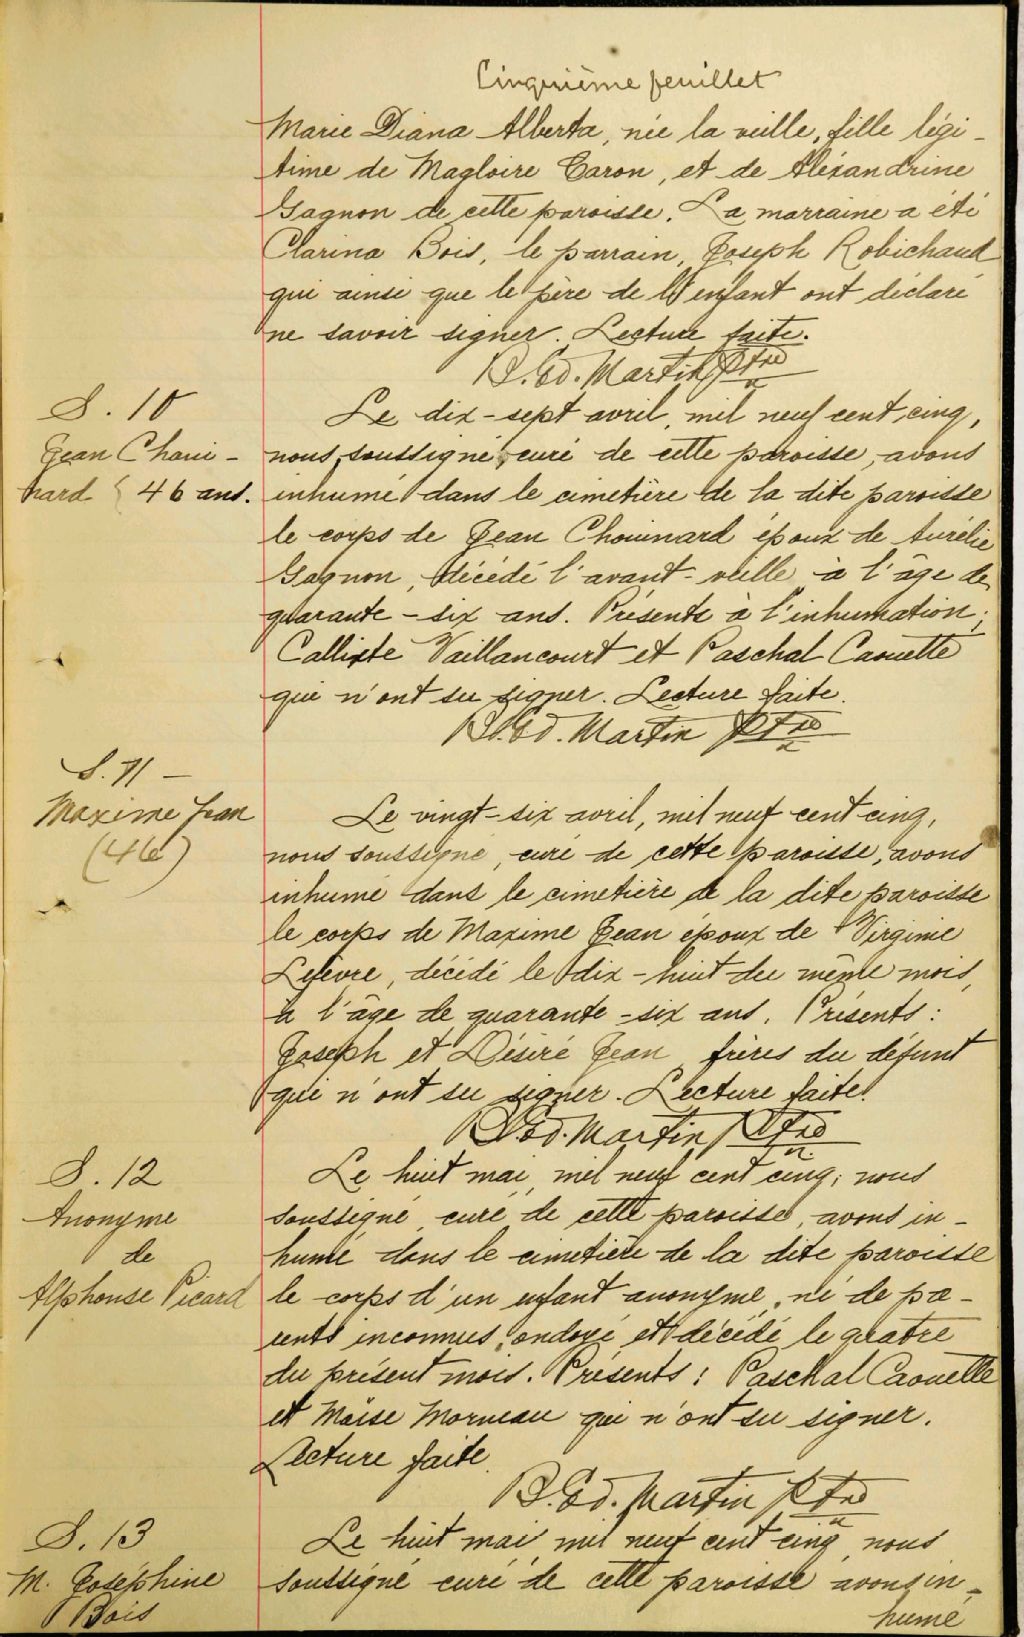 Cinquième feuillet
Marie Diana Alberta, née la veille, fille légi-
time de Magloire Caron, et de Alexandrine
Gagnon de cette paroisse. La marraine a été
Clarina Bois, le parrain, Joseph Robichaud
qui ainsi que le père de l'enfant ont déclaré
ne savoir signer. Lecture faite.
B. Ed. Martin Ptre
S. 10
Jean Choui-
nard 46 ans.
Le dix-sept avril, mil neuf cent cinq,
nous soussigné, curé de cette paroisse, avons
inhumé dans le cimetière de la dite paroisse
le corps de Jean Chouinard époux de Aurélie
Gagnon, décédé l'avant-veille à l'âge de
quarante-six ans. Présents à l'inhumation:
Callixte Vaillancourt et Paschal Caouette
qui n'ont su signer. Lecture faite.
B. Ed. Martin Ptre
S. 11 -
Maxime Jean
(46)
Le vingt-six avril, mil neuf cent cinq,
nous soussigné, curé de cette paroisse, avons
inhumé dans le cimetière de la dite paroisse
le corps de Maxime Jean époux de Virginie
Lefèvre, décédé le dix-huit du même mois,
à l'âge de quarante-six ans. Présents:
Joseph et Désiré Jean frères du défunt
qui n'ont su signer. Lecture faite.
B. Ed. Martin Ptre
S. 12
Anonyme
de
Alphonse Picard
Le huit mai, mil neuf cent cinq, nous
soussigné, curé de cette paroisse, avons in-
humé dans le cimetière de la dite paroisse
le corps d'un enfant anonyme, né de pa-
rents inconnus, ondoyé et décédé le quatre
du présent mois. Présents: Paschal Caouette
et Moïse Morneau qui n'ont su signer.
Lecture faite.
B. Ed. Martin Ptre
S. 13
M. Joséphine
Bois
Le huit mai, mil neuf cent cinq, nous
soussigné curé de cette paroisse avons in-
humé